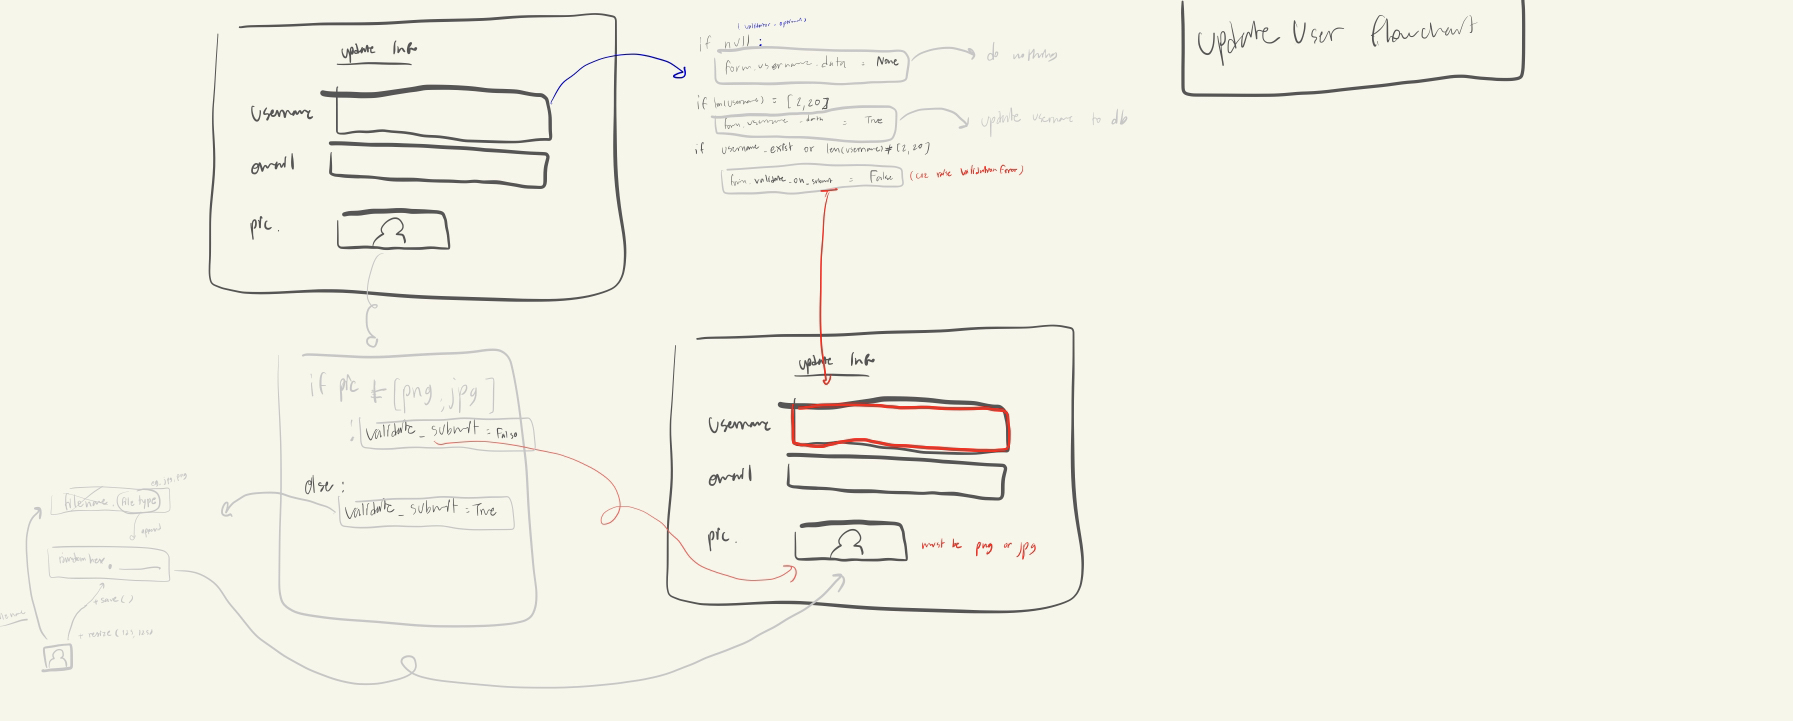 Update User flowchart
update Info
Username
email
pic.
(validator.optional)
if null :
form.username.data = None
do nothing
if len(username) = [2,20]
form.username.data = True
update username to db
if username_exist or len(username)≠[2,20]
form.validate_on_submit = False
(cuz raise ValidationError)
if pic ≠ [png, jpg]
: validate_submit = False
else :
validate_submit = True
filename.file type
append
random hex.
+ save()
+ resize
update Info
Username
email
pic.
must be png or jpg